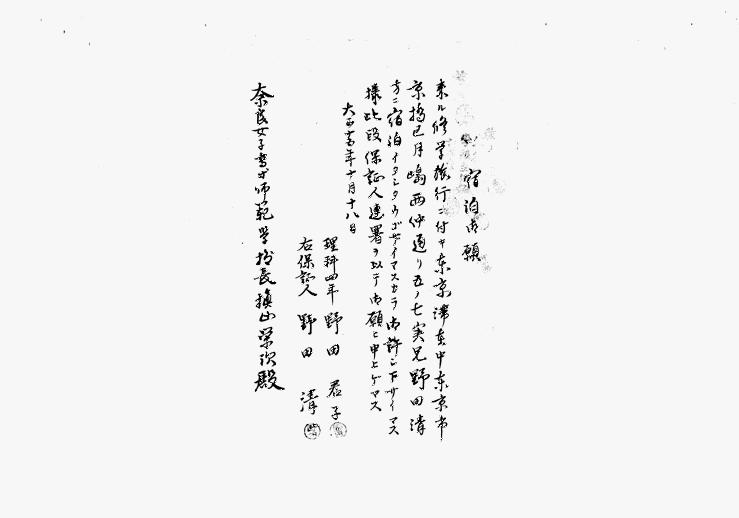 宿泊御願
来ル修学旅行ニ付キ東京滞在中東京市
京橋区月嶋西仲通り五ノ七実兄野田清
方ニ宿泊イタシタウゴザイマスカラ御許シ下サイマス
様此段保証人連署ヲ以テ御願ヒ申上ゲマス
大正十五年十月十八日
理科四年 野田君子
右保証人 野田 清
奈良女子高等師範学校長槙山栄次殿